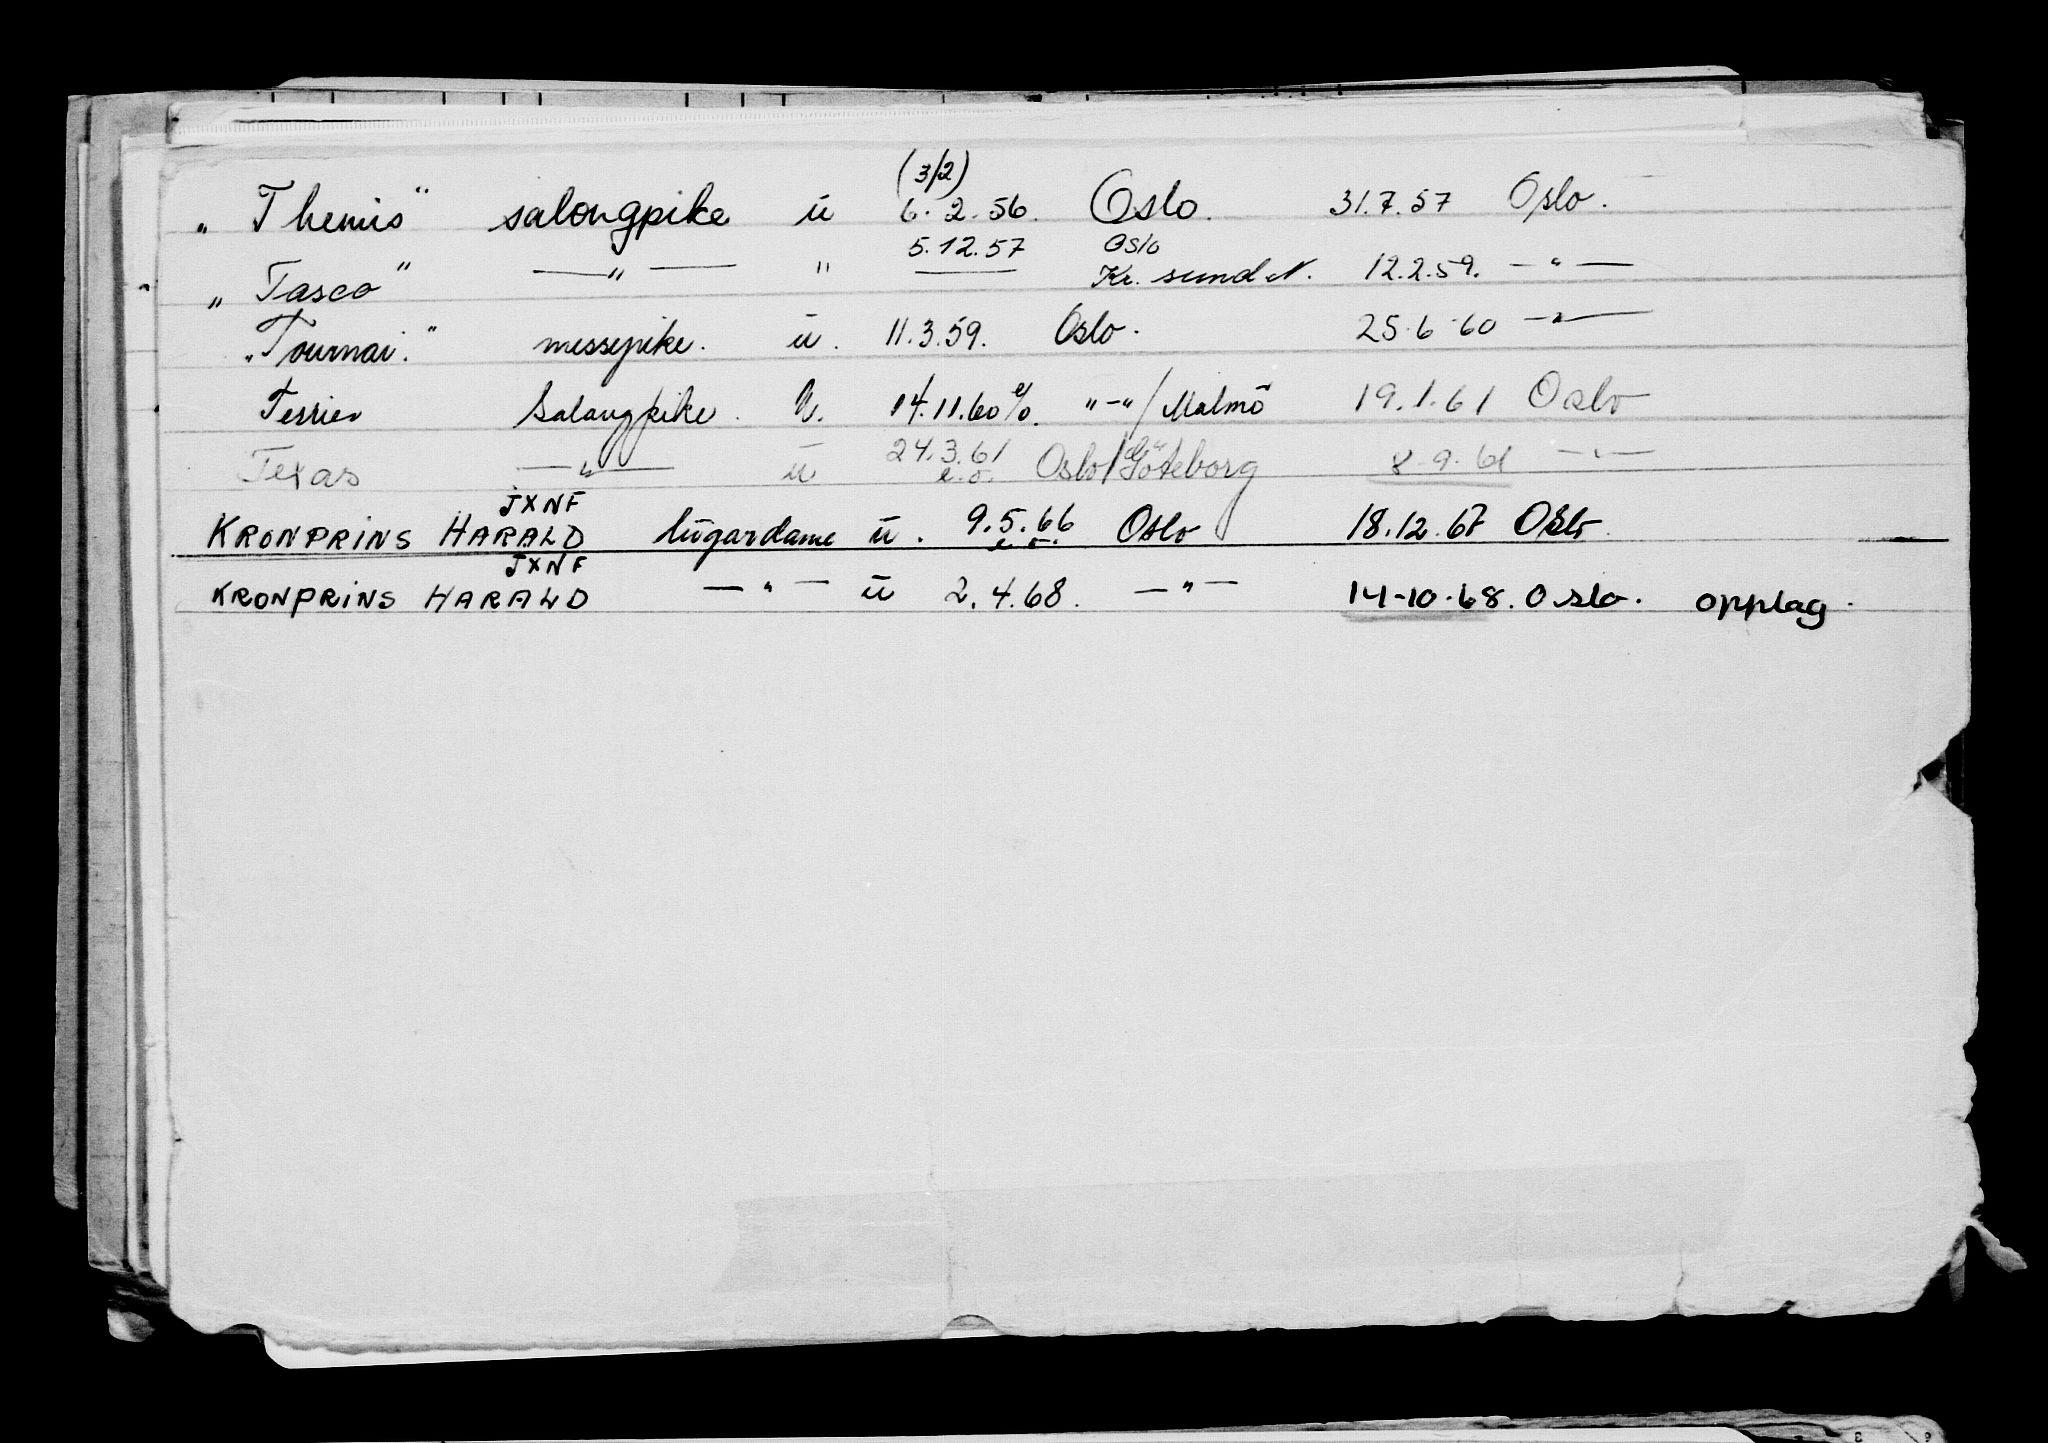 (3/2)
„ Themis" salongpike ü 6.2.56. Oslo. 31.7.57 Oslo.
5.12.57 Oslo
„ Tasco" —"— " —— Kr. sund N. 12.2.59. —"—
„Tournai." messepike. ü. 11.3.59. Oslo. 25.6.60 —"—
Terrier Salongpike. ü. 14.11.60 e/o. "-"/Malmö 19.1.61 Oslo
Texas —"— ü 24.3.61 e.o. Oslo/Göteborg 8.9.61 —"—
JXNF
KRONPRINS HARALD lugardame ü. 9.5.66 e.o. Oslo 18.12.67 Oslo.
JXNF
KRONPRINS HARALD —"— ü 2.4.68. —"— 14-10.68. Oslo. opplag.